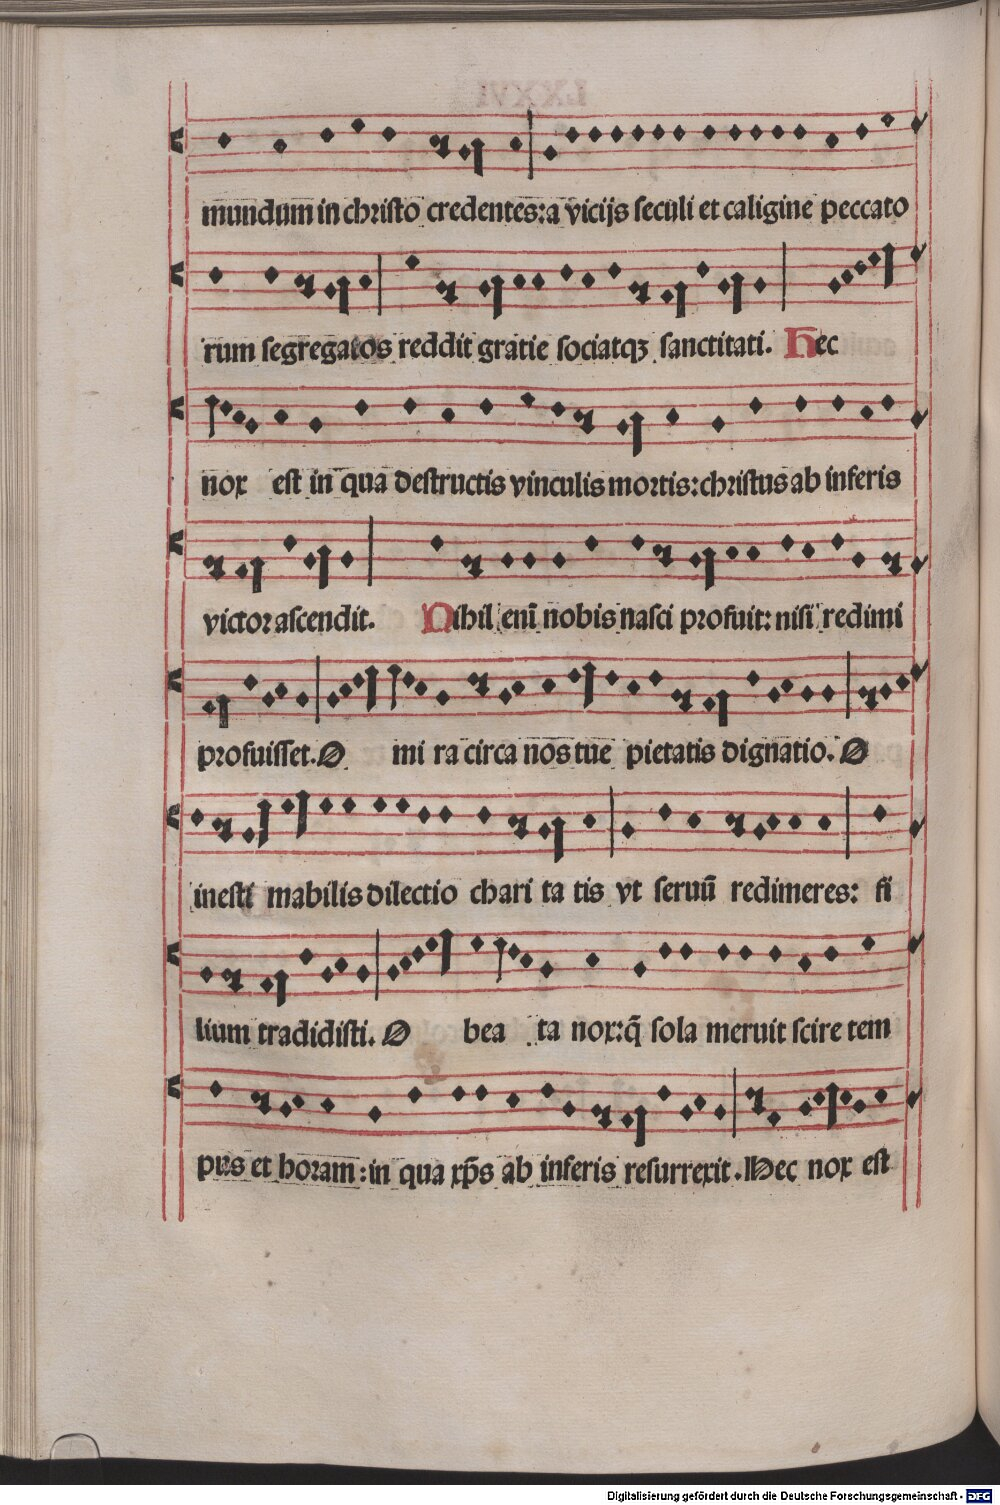 mundum in christo credentes: a vicijs seculi et caligine peccato
rum segregatos reddit gratie sociatqꝫ sanctitati. Hec
nox est in qua destructis vinculis mortis: christus ab inferis
victor ascendit. Nihil eni̅ nobis nasci profuit: nisi redimi
profuisset. O mi ra circa nos tue pietatis dignatio. O
inesti mabilis dilectio chari ta tis vt seruu̅ redimeres: fi
lium tradidisti. O bea ta nox: q̅ sola meruit scire tem
pus et horam: in qua xp̅s ab inferis resurrexit. Hec nox est
Digitalisierung gefördert durch die Deutsche Forschungsgemeinschaft - DFG